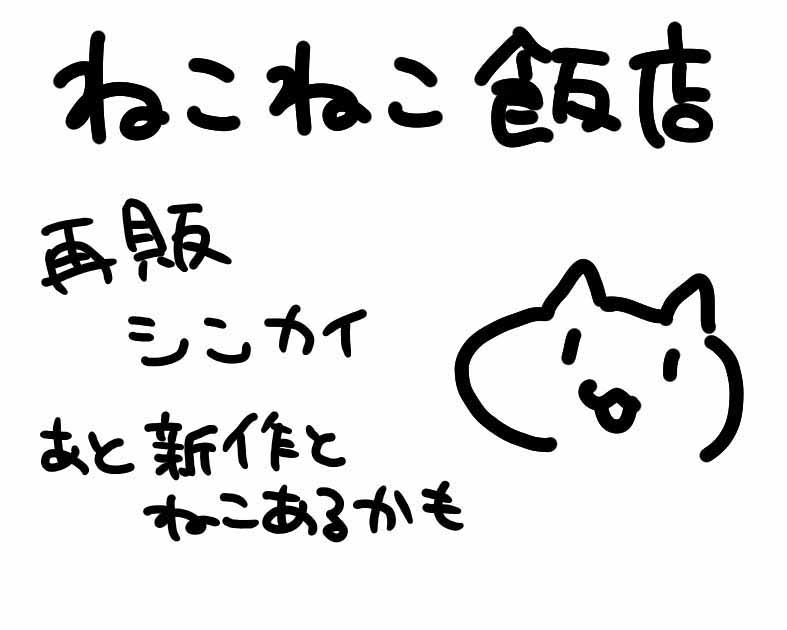 ねこねこ飯店
再販
シンカイ
あと新作と
ねこあるかも